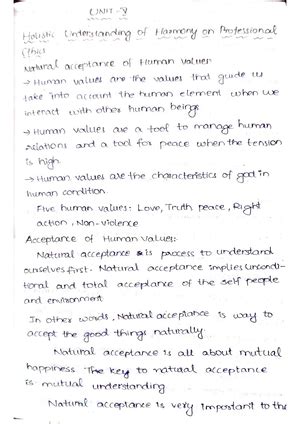 UNIT-8
Holistic Understanding of Harmony on Professional
Ethics
Natural acceptance of Human Values:
→ Human values are the values that guide us
take into account the human element when we
interact with other human beings
→ Human values are a tool to manage human
relations and a tool for peace when the tension
is high.
→ Human values are the characteristics of god in
human condition.
Five human values: Love, Truth peace, Right
action, Non-violence
Acceptance of Human Values:
Natural acceptance is process to understand
ourselves first. Natural acceptance implies uncondi-
tional and total acceptance of the self people
and environment
In other words, Natural acceptance is way to
accept the good things naturally.
Natural acceptance is all about mutual
happiness The key to natural acceptance
is mutual understanding
Natural acceptance is very important to the